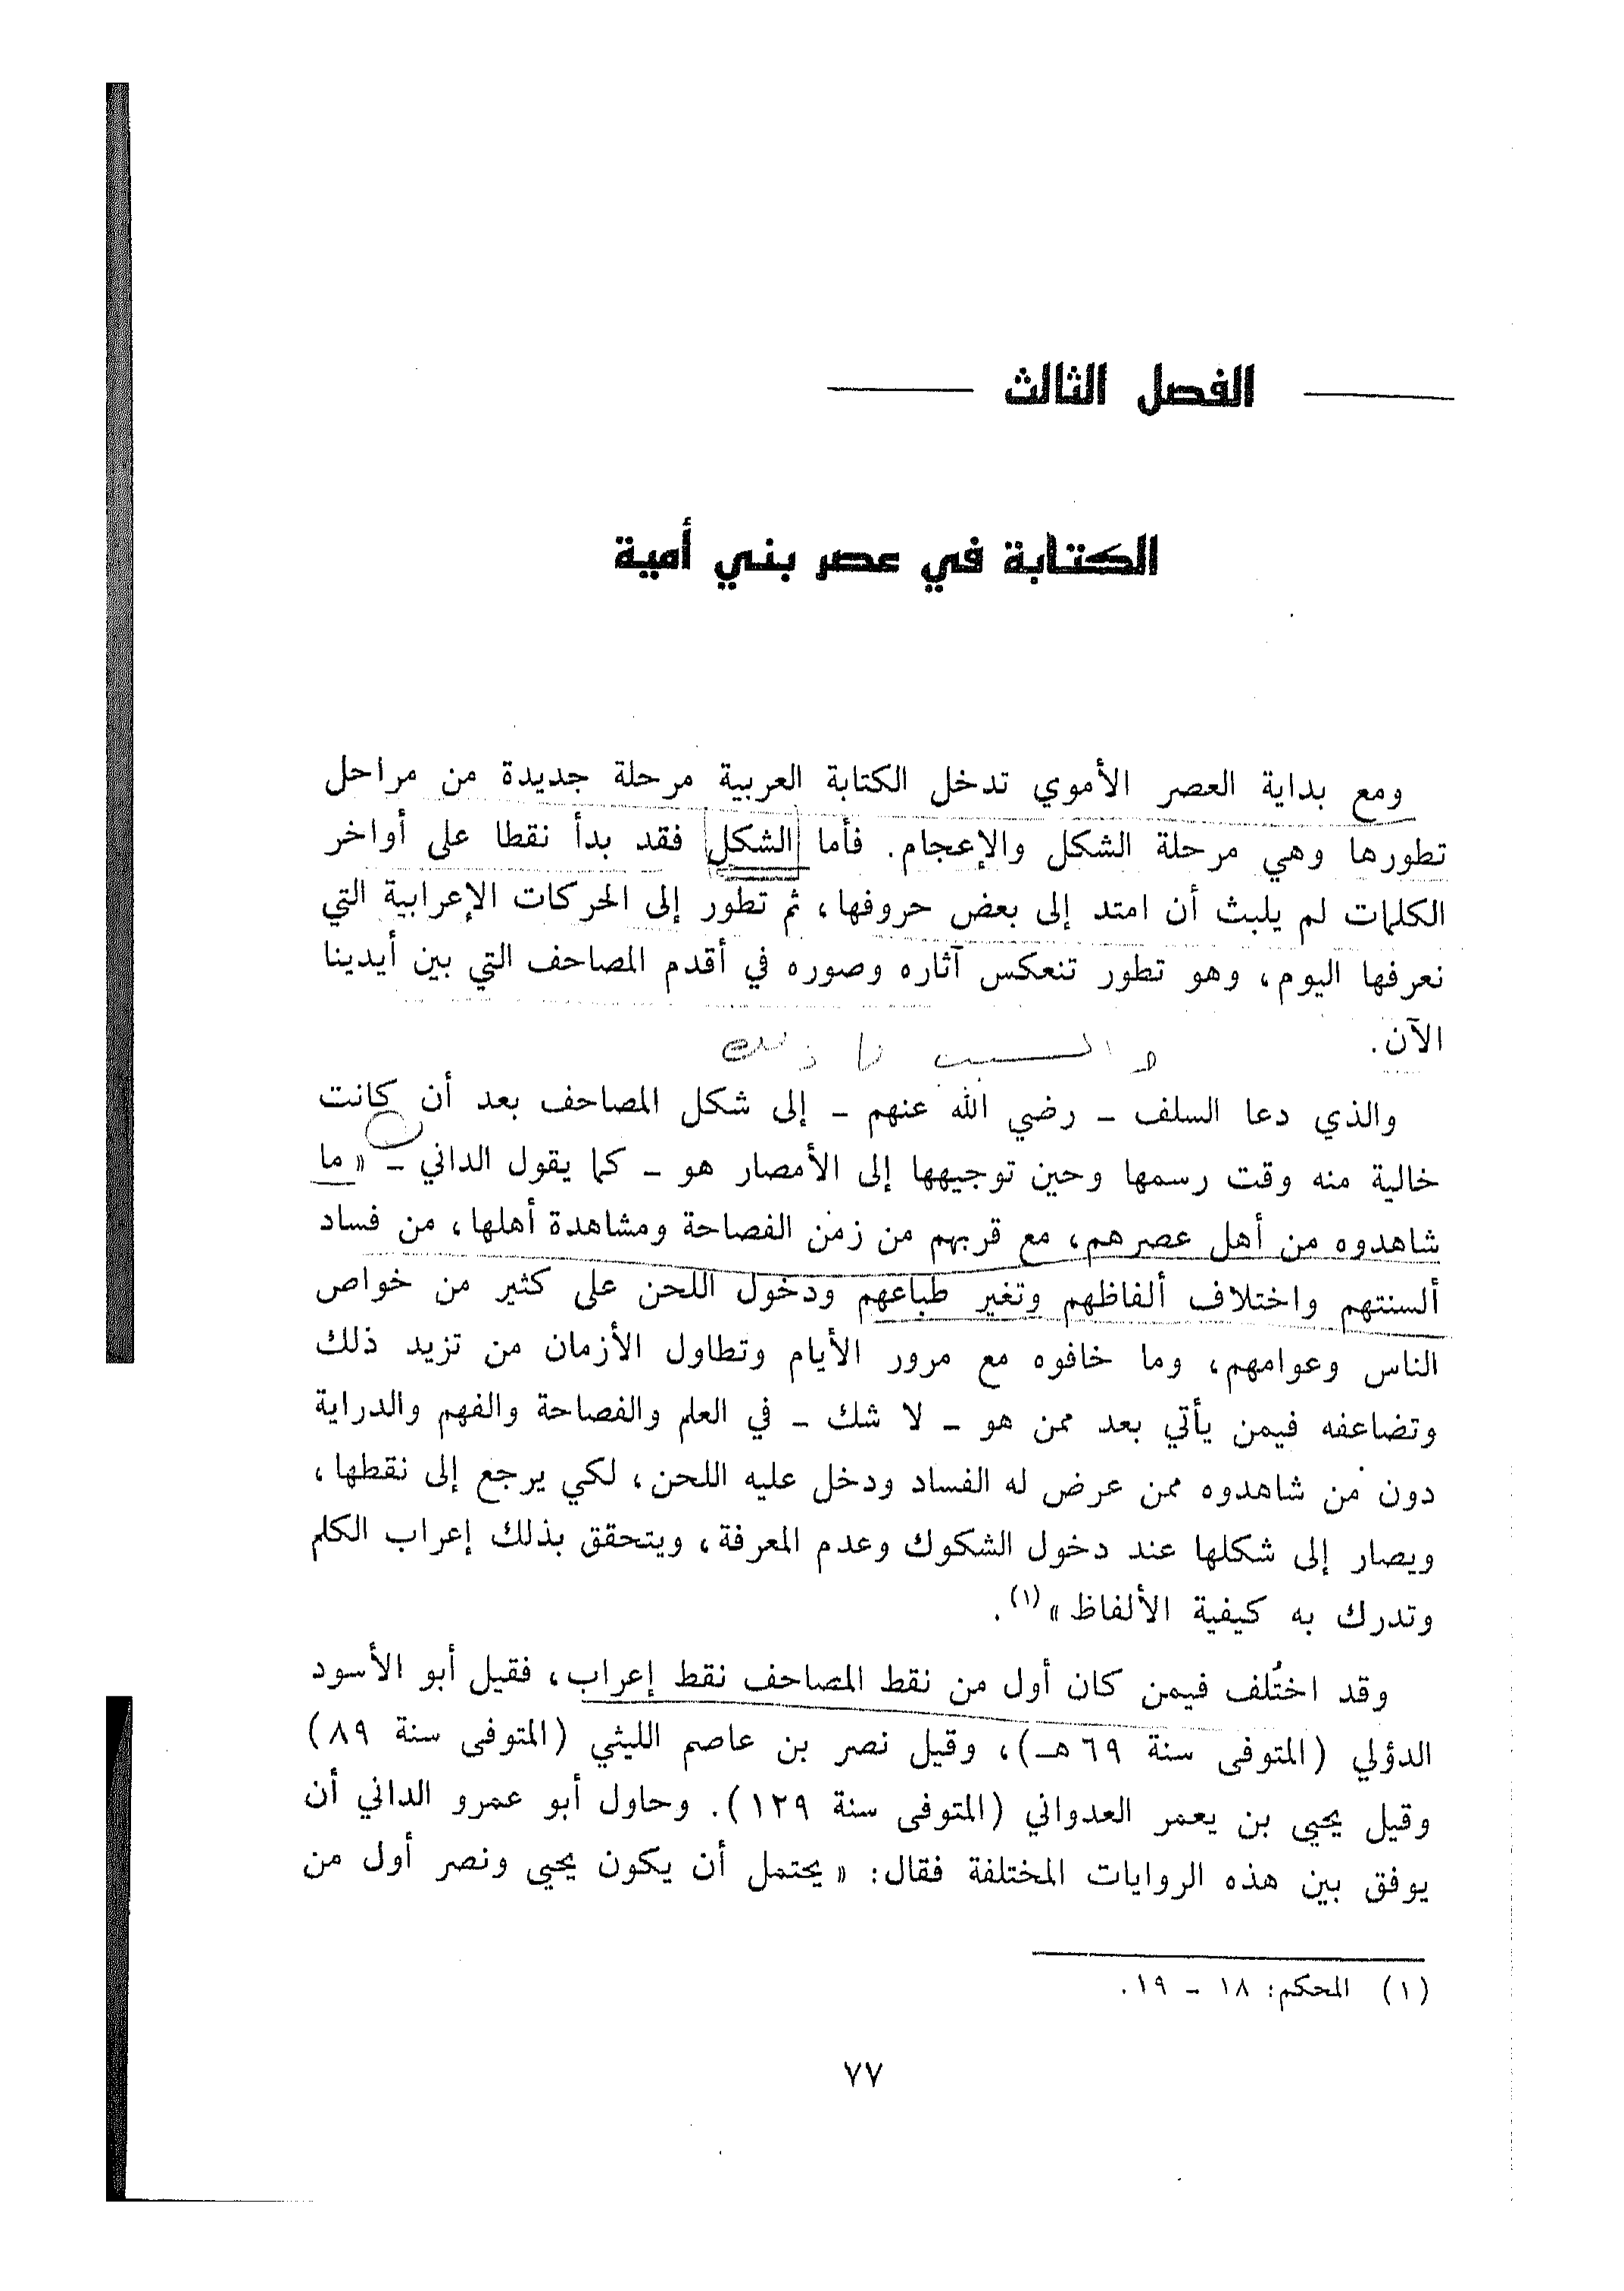 الفصل الثالث
الكتابة في عصر بني أمية
ومع بداية العصر الأموي تدخل الكتابة العربية مرحلة جديدة من مراحل
تطورها وهي مرحلة الشكل والإعجام. فأما الشكل فقد بدأ نقطا على أواخر
الكلمات لم يلبث أن امتد إلى بعض حروفها، ثم تطور إلى الحركات الإعرابية التي
نعرفها اليوم، وهو تطور تنعكس آثاره وصوره في أقدم المصاحف التي بين أيدينا
الآن.
والسبب ذلك
والذي دعا السلف - رضي الله عنهم - إلى شكل المصاحف بعد أن كانت
خالية منه وقت رسمها وحين توجيهها إلى الأمصار هو - كما يقول الداني - «ما
شاهدوه من أهل عصرهم، مع قربهم من زمن الفصاحة ومشاهدة أهلها، من فساد
ألسنتهم واختلاف ألفاظهم وتغير طباعهم ودخول اللحن على كثير من خواص
الناس وعوامهم، وما خافوه مع مرور الأيام وتطاول الأزمان من تزيد ذلك
وتضاعفه فيمن يأتي بعد ممن هو - لا شك - في العلم والفصاحة والفهم والدراية
دون من شاهدوه ممن عرض له الفساد ودخل عليه اللحن، لكي يرجع إلى نقطها،
ويصار إلى شكلها عند دخول الشكوك وعدم المعرفة، ويتحقق بذلك إعراب الكلم
وتدرك به كيفية الألفاظ»(١).
وقد اختُلف فيمن كان أول من نقط المصاحف نقط إعراب، فقيل أبو الأسود
الدؤلي (المتوفى سنة ٦٩ هـ)، وقيل نصر بن عاصم الليثي (المتوفى سنة ٨٩)
وقيل يحيى بن يعمر العدواني (المتوفى سنة ١٢٩). وحاول أبو عمرو الداني أن
يوفق بين هذه الروايات المختلفة فقال: «يحتمل أن يكون يحيى ونصر أول من
(١) المحكم: ١٨ - ١٩.
٧٧